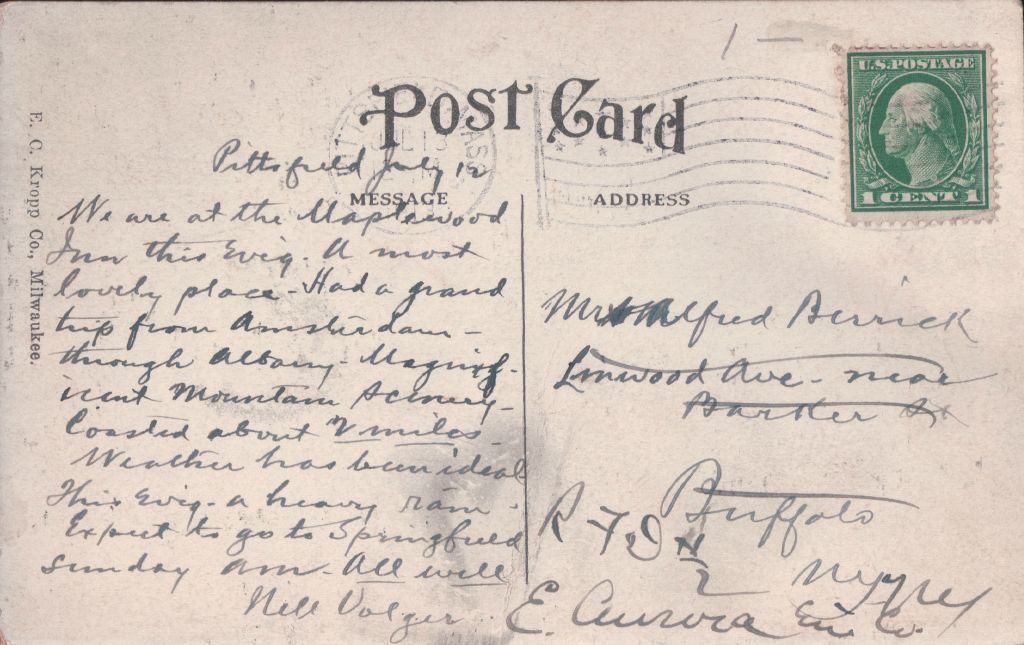 1 —
U.S. POSTAGE
1 CENT 1
POST CARD
Pittsfield July 12
MESSAGE
We are at the Maplewood
Inn this Evig. A most
lovely place - Had a grand
trip from Amsterdam -
through Albany Magnif-
icent Mountain Scenery -
Coasted about 2 miles.
Weather has been ideal
This Evig. a heavy rain.
Expect to go to Springfield
Sunday am. All well
Nell Volger
E. C. Kropp Co., Milwaukee.
ADDRESS
Alfred Berrick
Linwood Ave. near
Barker St
Buffalo
R F D
N.Y.
E. Aurora Erie Co.